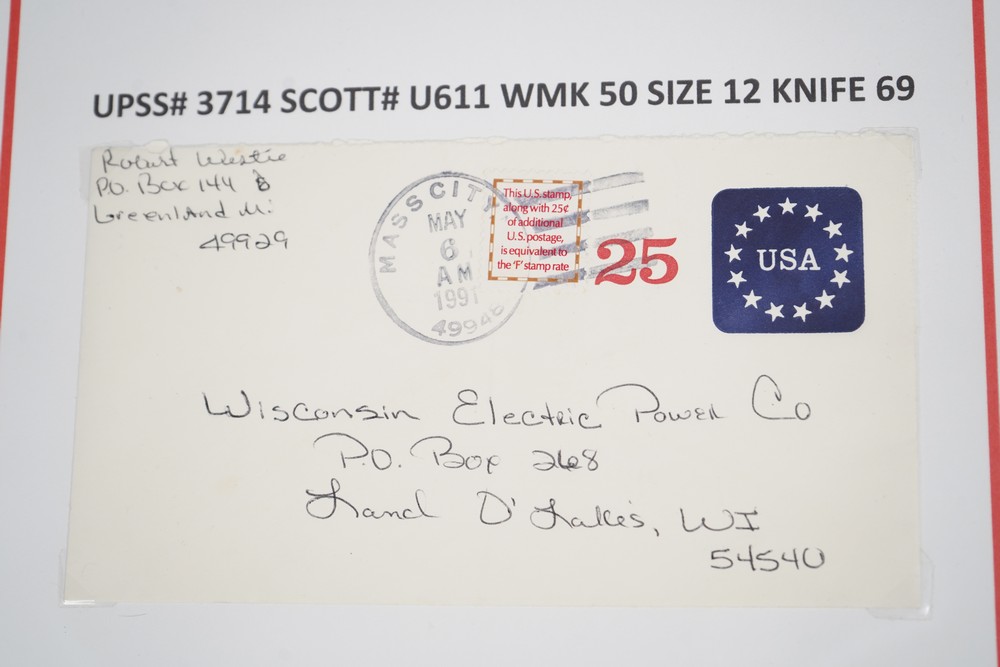 UPSS# 3714 SCOTT# U611 WMK 50 SIZE 12 KNIFE 69
Robert Westie
P.O. Box 144 B
Greenland Mi.
49929
MASS CITY
MAY
6
AM
1991
49948
This U.S. stamp,
along with 25¢
of additional
U.S. postage,
is equivalent to
the 'F' stamp rate
25
USA
Wisconsin Electric Power Co
P.O. Box 268
Land O' Lakes, WI
54540